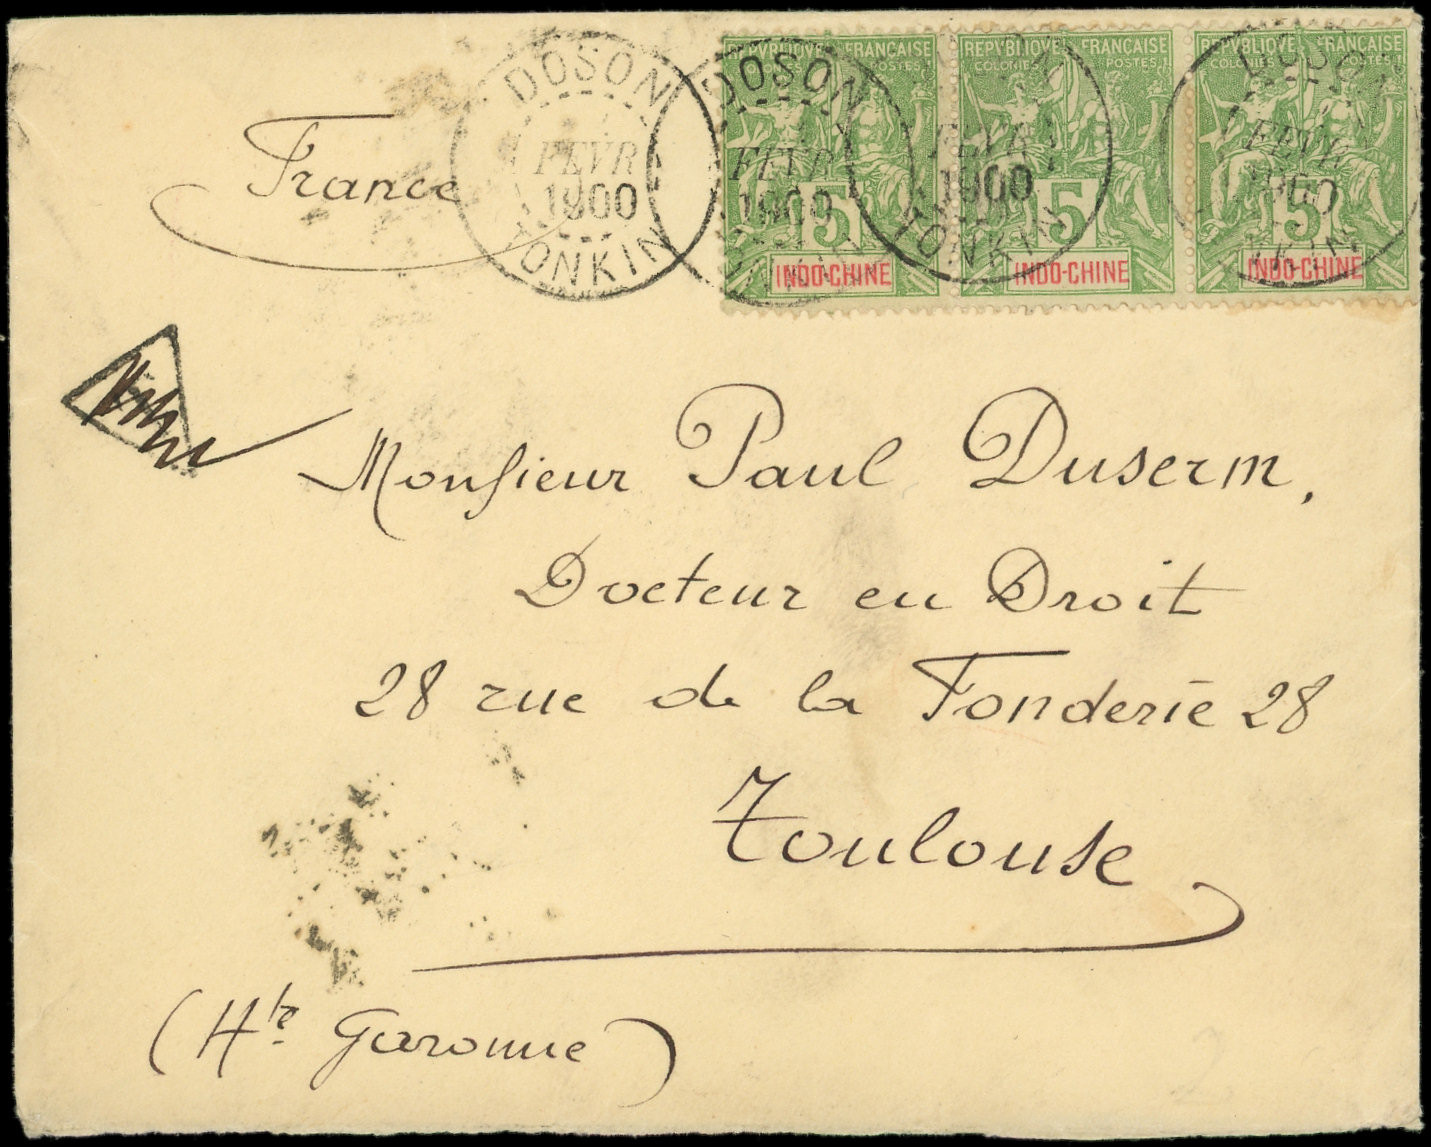 DOSON
FEVR
1900
TONKIN
DOSON
FEVR
1900
FEVR
1900
TONKIN
FEVR
1900
REPVBLIQVE FRANÇAISE
COLONIES POSTES
5
INDO-CHINE
REPVBLIQVE FRANÇAISE
COLONIES POSTES
5
INDO-CHINE
REPVBLIQVE FRANÇAISE
COLONIES POSTES
5
INDO-CHINE
France
Monsieur Paul Duserm,
Docteur en Droit
28 rue de la Fonderie 28
Toulouse
(Hte Garonne)